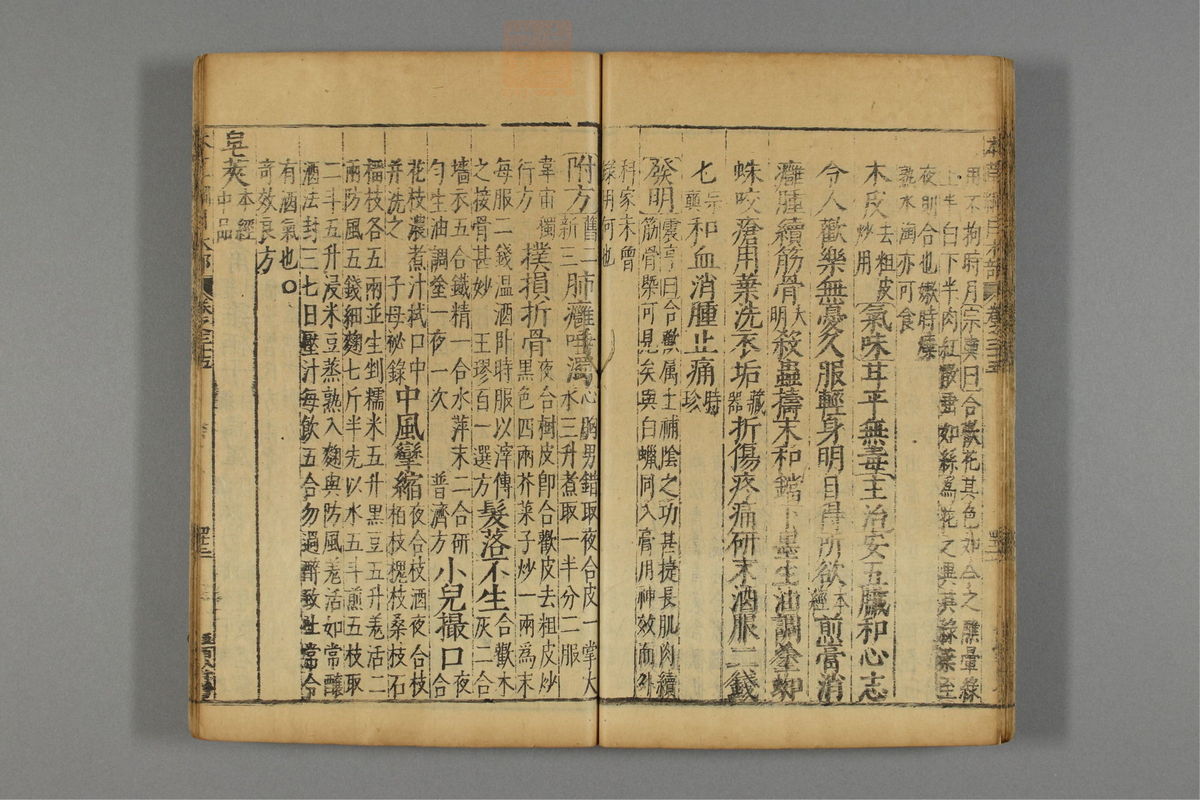 用不拘時月宗奭曰合歡花其色如今之醮暈綠
上半白下半肉紅散垂如絲爲花之異其綠葉至
夜則合也嫩時煠
熟水淘亦可食
木皮去粗皮炒用氣味甘平無毒主治安五臟和心志
令人歡樂無憂久服輕身明目得所欲本經煎膏消
癰腫續筋骨大明殺蟲擣末和鐺下墨生油調塗蜘
蛛咬瘡用葉洗衣垢藏器折傷疼痛研末酒服二錢
七宗奭和血消腫止痛時珍
發明震亨曰合歡属土補陰之功甚捷長肌肉續
筋骨槩可見矣與白蠟同入膏用神效而外
科家未曾
錄用何也
附方舊二新三肺癰唾濁心胸甲錯取夜合皮一掌大
水三升煮取一半分二服
韋宙獨
行方撲損折骨夜合樹皮即合歡皮去粗皮炒
黑色四兩芥菜子炒一兩爲末
每服二錢温酒卧時服以滓傅
之接骨甚妙 王璆百一選方髮落不生合歡木
灰二合
墻衣五合鐵精一合水萍末二合研
勻生油調塗一夜一次 普濟方小兒撮口夜合
花枝濃煮汁拭口中
并洗之 子母秘錄中風攣縮夜合枝酒夜合枝
柏枝槐枝桑枝石
榴枝各五兩並生剉糯米五升黑豆五升羗活二
兩防風五錢細麯七斤半先以水五斗煎五枝取
二斗五升浸米豆蒸熟入麯與防風羗活如常釀
酒法封三七日壓汁每飲五合勿過醉致吐常令
有酒氣也〇
奇效良方
皂莢本經中品